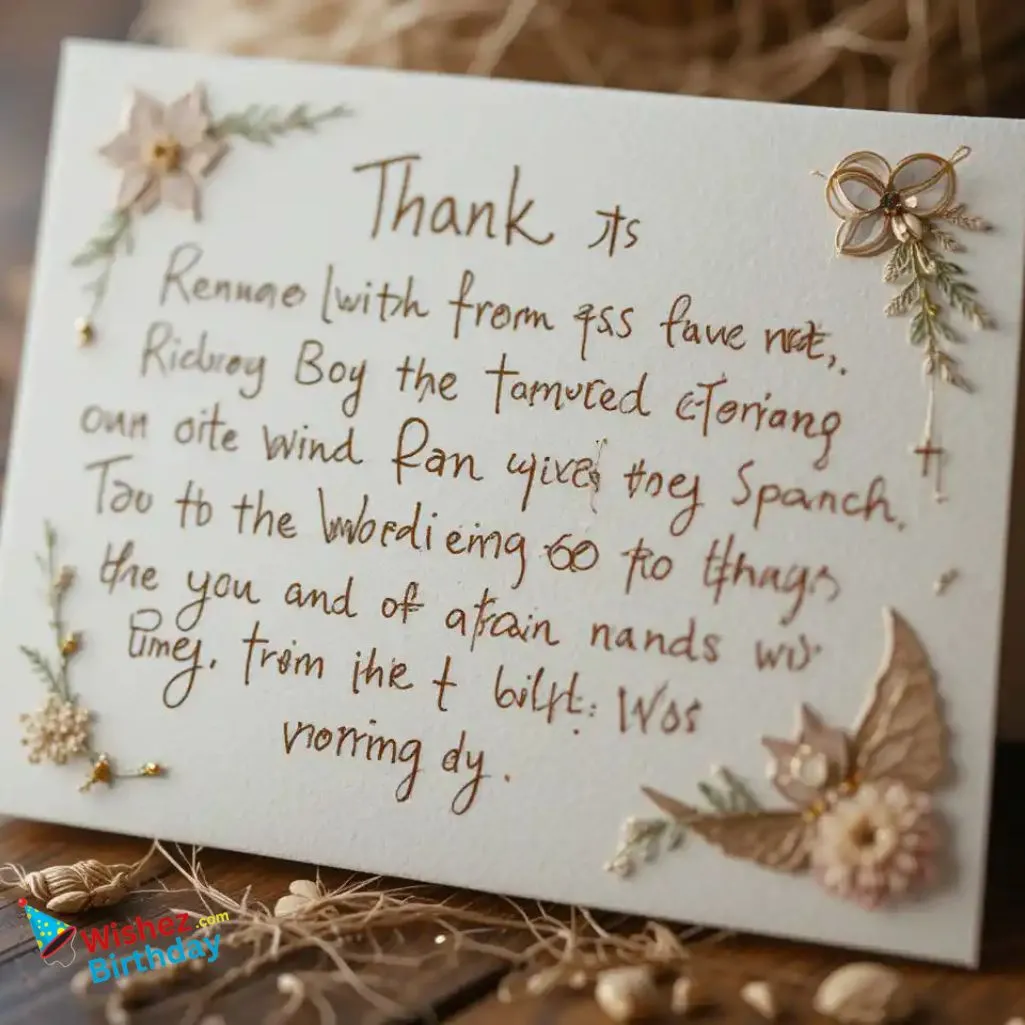 Thank its
Renuae with from qss faue not,.
Ricbroy Boy the tamured cToriang
oun oite wind Ran yives they Spanch.
Tao to the Wbordieing 60 to thnags
the you and of afrain nands wis
timey. from ihe t bilft: Wos
vrorring dy.
Wishez.com
Birthday